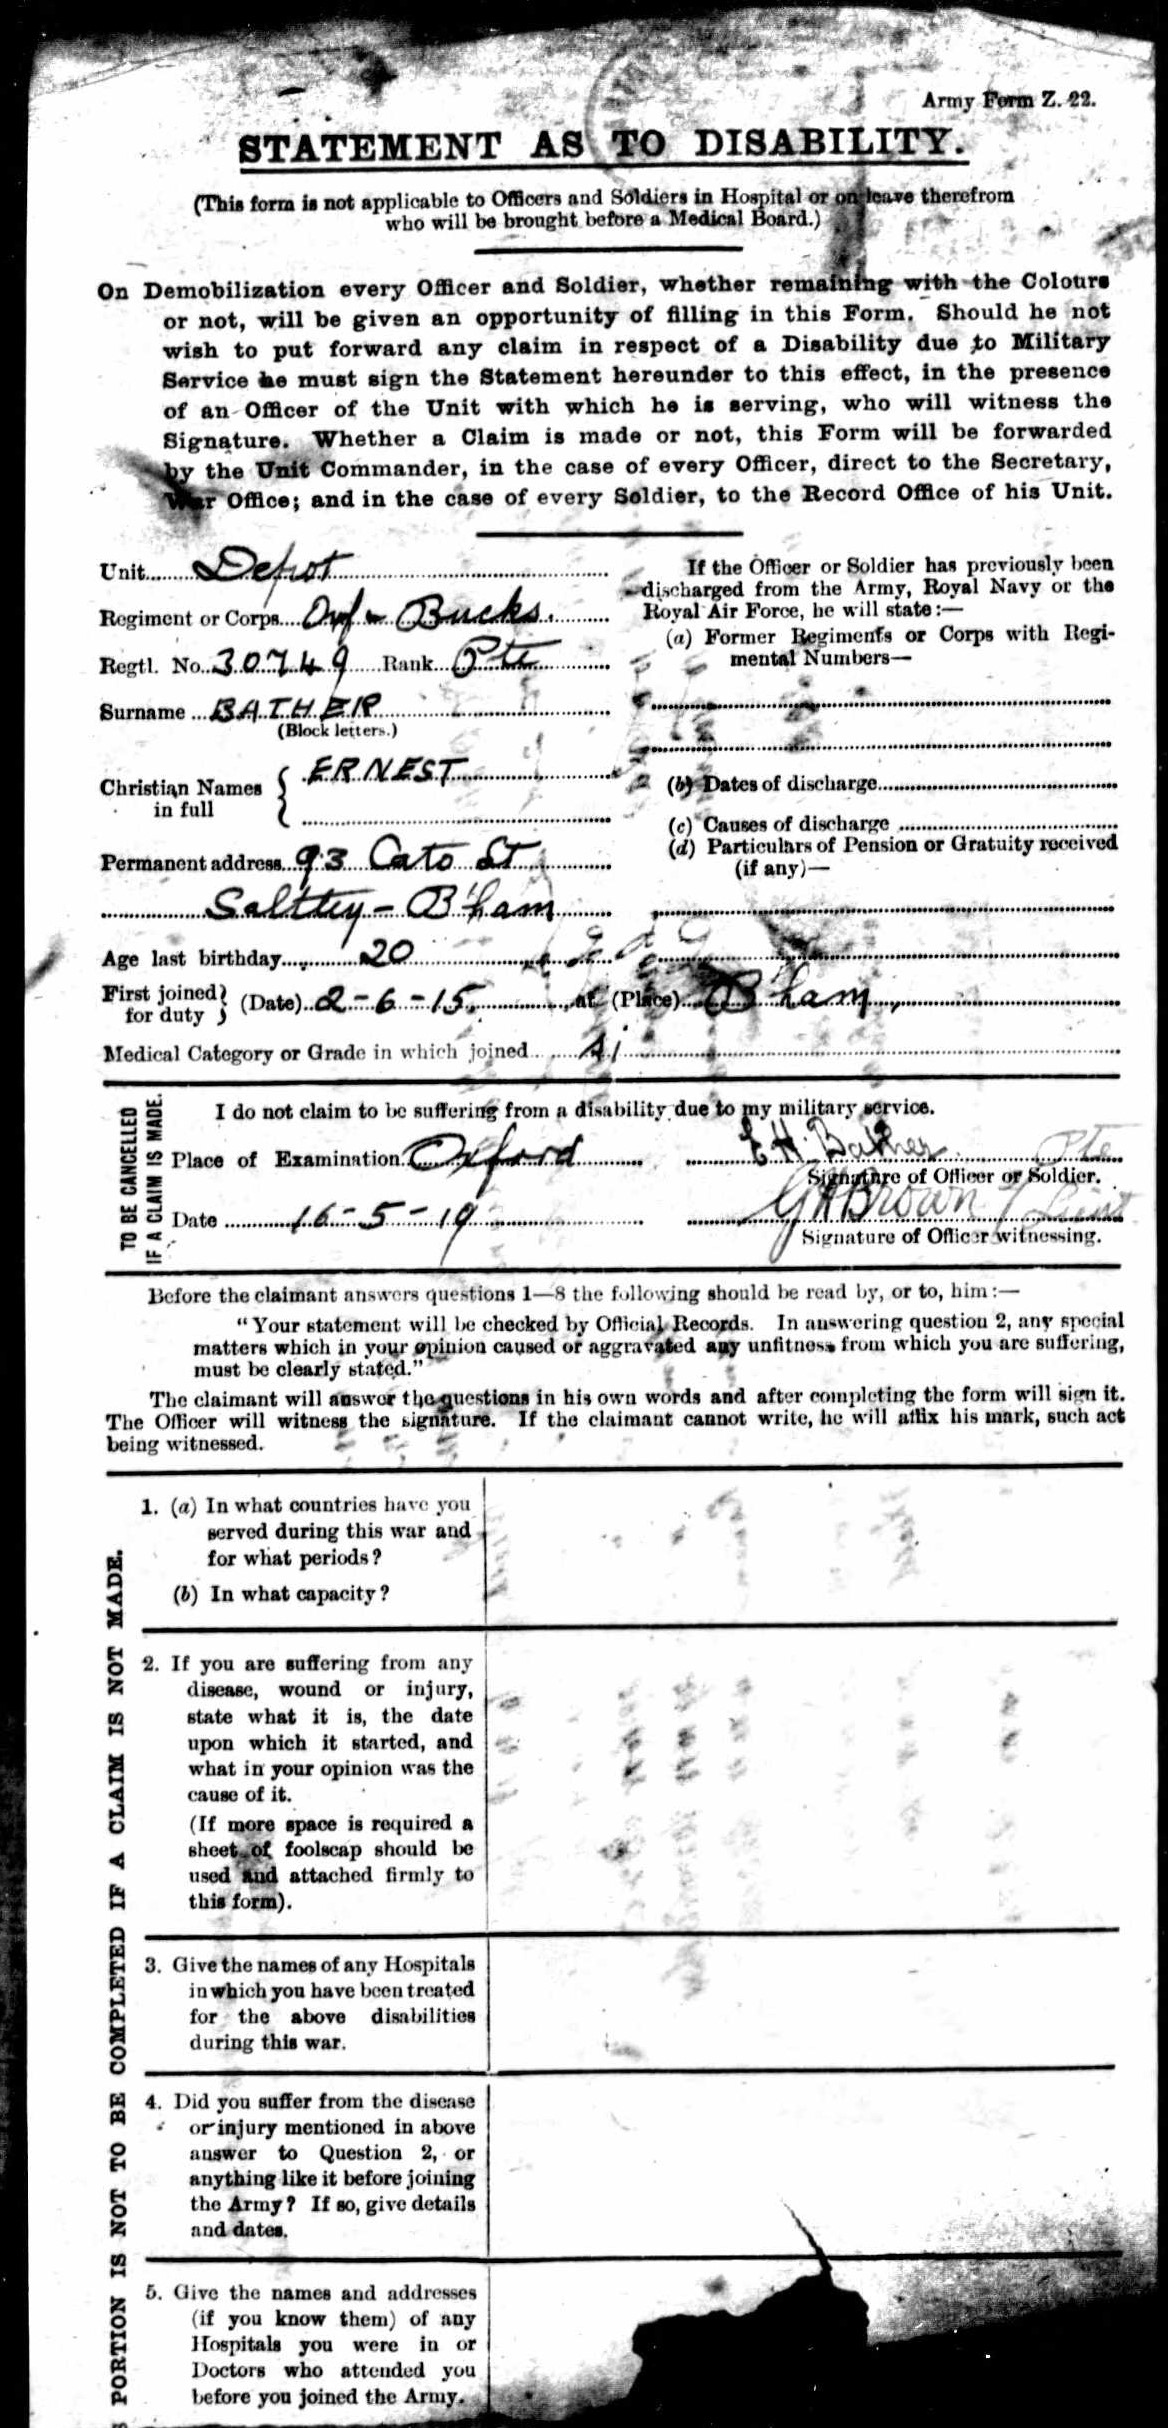 Army Form Z. 22.
STATEMENT AS TO DISABILITY.
(This form is not applicable to Officers and Soldiers in Hospital or on leave therefrom
who will be brought before a Medical Board.)
On Demobilization every Officer and Soldier, whether remaining with the Colours
or not, will be given an opportunity of filling in this Form. Should he not
wish to put forward any claim in respect of a Disability due to Military
Service he must sign the Statement hereunder to this effect, in the presence
of an Officer of the Unit with which he is serving, who will witness the
Signature. Whether a Claim is made or not, this Form will be forwarded
by the Unit Commander, in the case of every Officer, direct to the Secretary,
War Office; and in the case of every Soldier, to the Record Office of his Unit.
Unit Depot
Regiment or Corps Oxf & Bucks.
Regtl. No. 30749 Rank Pte
Surname BATHER
(Block letters.)
Christian Names ERNEST
in full
Permanent address 93 Cato St
Saltley - B'ham
Age last birthday 20
If the Officer or Soldier has previously been
discharged from the Army, Royal Navy or the
Royal Air Force, he will state:—
(a) Former Regiments or Corps with Regi-
mental Numbers—
(b) Dates of discharge
(c) Causes of discharge
(d) Particulars of Pension or Gratuity received
(if any)—
First joined for duty (Date) 2-6-15 at (Place) B'ham,
Medical Category or Grade in which joined A1
TO BE CANCELLED
IF A CLAIM IS MADE.
I do not claim to be suffering from a disability due to my military service.
Place of Examination Oxford E H. Bather Pte
Signature of Officer or Soldier.
Date 16-5-19 G H Brown / Lieut
Signature of Officer witnessing.
Before the claimant answers questions 1—8 the following should be read by, or to, him:—
"Your statement will be checked by Official Records. In answering question 2, any special
matters which in your opinion caused or aggravated any unfitness from which you are suffering,
must be clearly stated."
The claimant will answer the questions in his own words and after completing the form will sign it.
The Officer will witness the signature. If the claimant cannot write, he will affix his mark, such act
being witnessed.
PORTION IS NOT TO BE COMPLETED IF A CLAIM IS NOT MADE.
1. (a) In what countries have you
served during this war and
for what periods?
(b) In what capacity?
2. If you are suffering from any
disease, wound or injury,
state what it is, the date
upon which it started, and
what in your opinion was the
cause of it.
(If more space is required a
sheet of foolscap should be
used and attached firmly to
this form).
3. Give the names of any Hospitals
in which you have been treated
for the above disabilities
during this war.
4. Did you suffer from the disease
or injury mentioned in above
answer to Question 2, or
anything like it before joining
the Army? If so, give details
and dates.
5. Give the names and addresses
(if you know them) of any
Hospitals you were in or
Doctors who attended you
before you joined the Army.